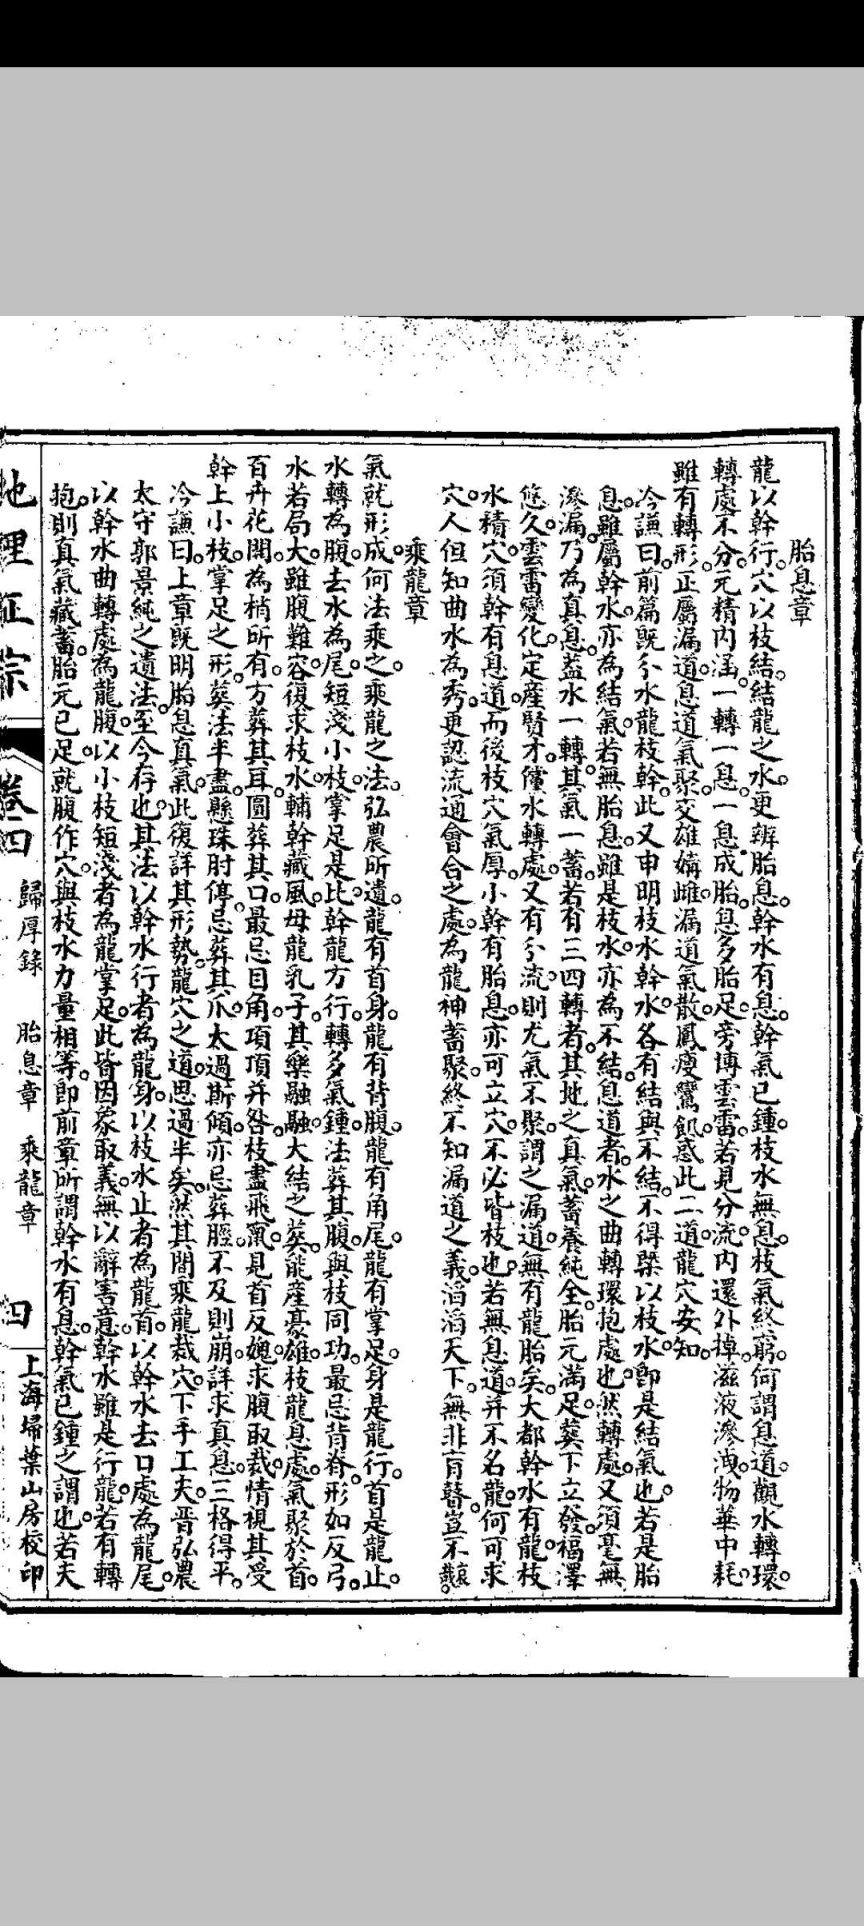 胎息章
龍以幹行。穴以枝結。結龍之水。更辨胎息。幹水有息。幹氣已鍾。枝水無息。枝氣終窮。何謂息道。觀水轉環。
轉處不分。元精內涵。一轉一息。一息成胎。息多胎足。旁博雲雷。若見分流。內還外掉。滋液滲洩。物華中耗。
雖有轉形。正屬漏道。息道氣聚。交雄媾雌。漏道氣散。鳳瘦鸞飢。惑此二道。龍穴安知。
冷謙曰。前篇既分水龍枝幹。此又申明枝水幹水。各有結與不結。不得槩以枝水。即是結氣也。若是胎
息。雖屬幹水。亦為結氣。若無胎息。雖是枝水。亦為不結。息道者。水之曲轉環抱處也。然轉處。又須毫無
滲漏。乃為真息。蓋水一轉。其氣一蓄。若有三四轉者。其地之真氣。蓄養純全。胎元滿足。葬下立發。福澤
悠久。雲雷變化。定產賢才。僅水轉處。又有分流。則尤氣不聚。謂之漏道。無有龍胎矣。大都幹水有龍。枝
水積穴。須幹有息道。而後枝穴氣厚。小幹有胎息。亦可立穴。不必皆枝也。若無息道。并不名龍。何可求
穴。人但知曲水為秀。更認流通會合之處。為龍神蓄聚。終不知漏道之義。滔滔天下。無非盲瞽。豈不哀。
乘龍章
氣就形成。何法乘之。乘龍之法。弘農所遺。龍有首身。龍有背腹。龍有角尾。龍有掌足。身是龍行。首是龍止。
水轉為腹。去水為尾。短淺小枝。掌足是比。幹龍方行。轉多氣鍾。法葬其腹。與枝同功。最忌背脊。形如反弓。
水若局大。雖腹難容。復求枝水。輔幹藏風。母龍乳子。其樂融融。大結之葬。能產豪雄。枝龍息處。氣聚於首。
百卉花開。為梢所有。方葬其耳。圓葬其口。最忌目角。項頂并咎。枝盡飛竄。見首反媿。求腹取裁。情視其受
幹上小枝。掌足之形。葬法半盡。懸珠肘停。忌葬其爪。太過斯傾。亦忌葬脛。不及則崩。詳求真息。三格得平。
冷謙曰。上章既明胎息真氣。此復詳其形勢。龍穴之道。思過半矣。然其間乘龍裁穴。下手工夫。晉弘農
太守郭景純之遺法。至今存也。其法以幹水行者為龍身。以枝水止者為龍首。以幹水去口處為龍尾。
以幹水曲轉處為龍腹。以小枝短淺者為龍掌足。此皆因象取義。無以辭害意。幹水雖是行龍。若有轉
抱。則真氣藏蓄。胎元已足。就腹作穴。與枝水力量相等。即前章所謂幹水有息。幹氣已鍾之謂也。若夫
地理正宗 卷四 歸厚錄 胎息章 乘龍章 四 上海埽葉山房校印